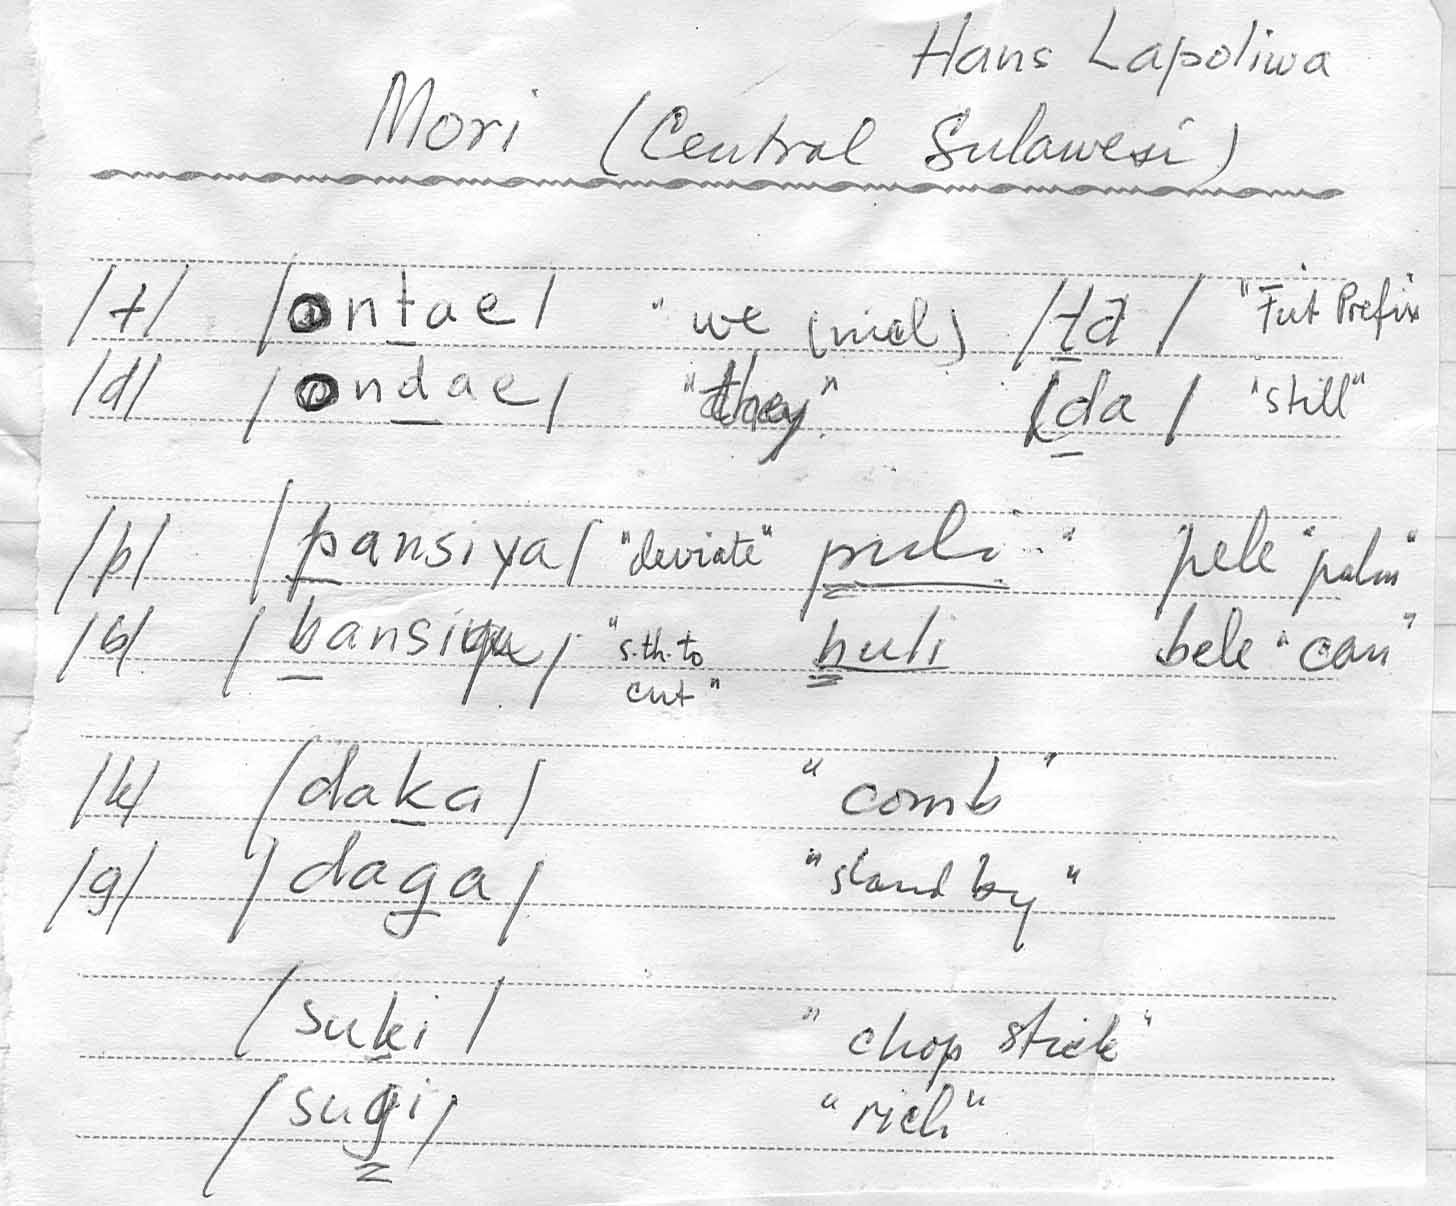 Hans Lapoliwa
Mori (Central Sulawesi)
/t/ /ontae/ "we (incl) /ta/ "Fut Prefix
/d/ /ondae/ "they" /da/ "still"
/p/ /pansiya/ "deviate" puli " pele "palm"
/b/ / "s.th. to cut" buli bele "can"
/k/ /daka/ "comb"
/g/ /daga/ "stand by"
/suki/ "chop stick"
/sugi/ "rich"